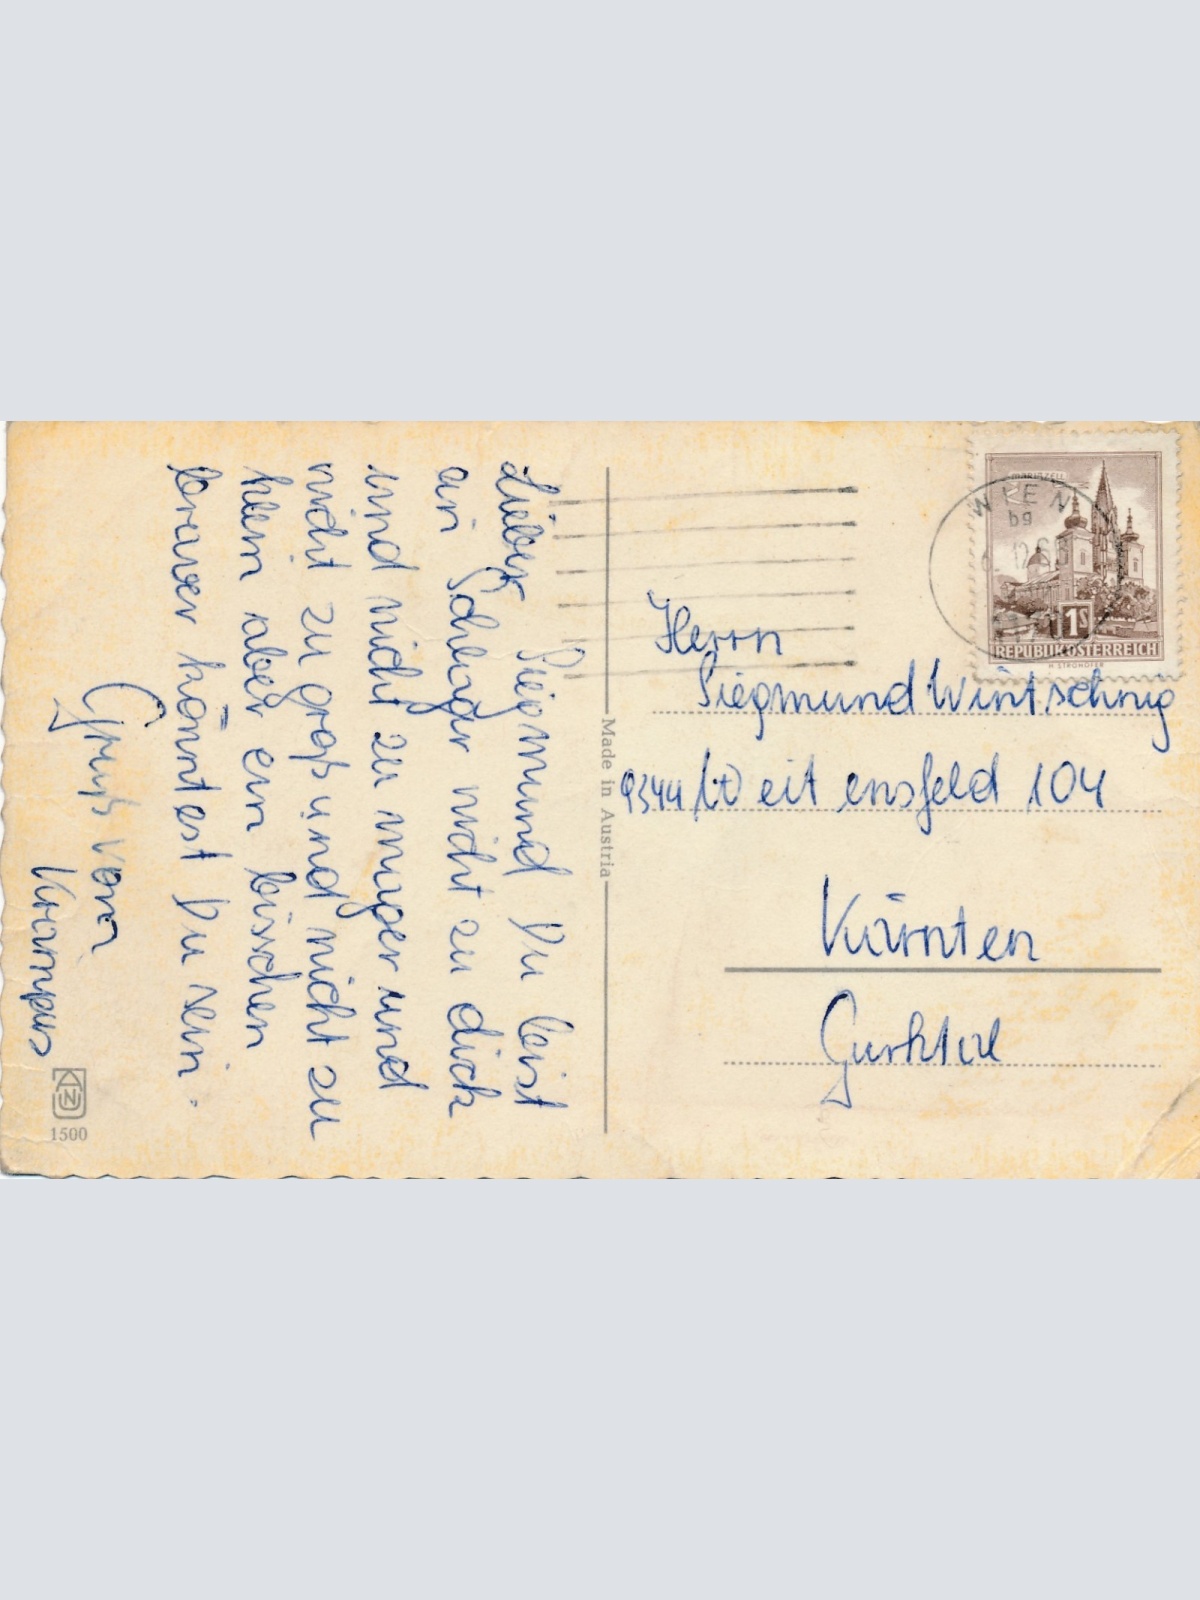 Lieber Siegmund Du bist
ein Schlager nicht zu dick
und nicht zu mager und
nicht zu groß und nicht zu
klein aber ein bisschen
braver könntest Du sein.
Gruß vom
Krampus
1500
Made in Austria
MARIAZELL
WIEN
1S
REPUBLIK ÖSTERREICH
H. STROHOFER
Herrn
Siegmund Wintschnig
9344 Weitensfeld 104
Kärnten
Gurktal